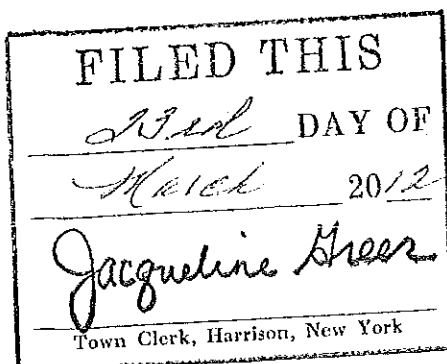 FILED THIS
23rd DAY OF
March 2012
Jacqueline Greer
Town Clerk, Harrison, New York